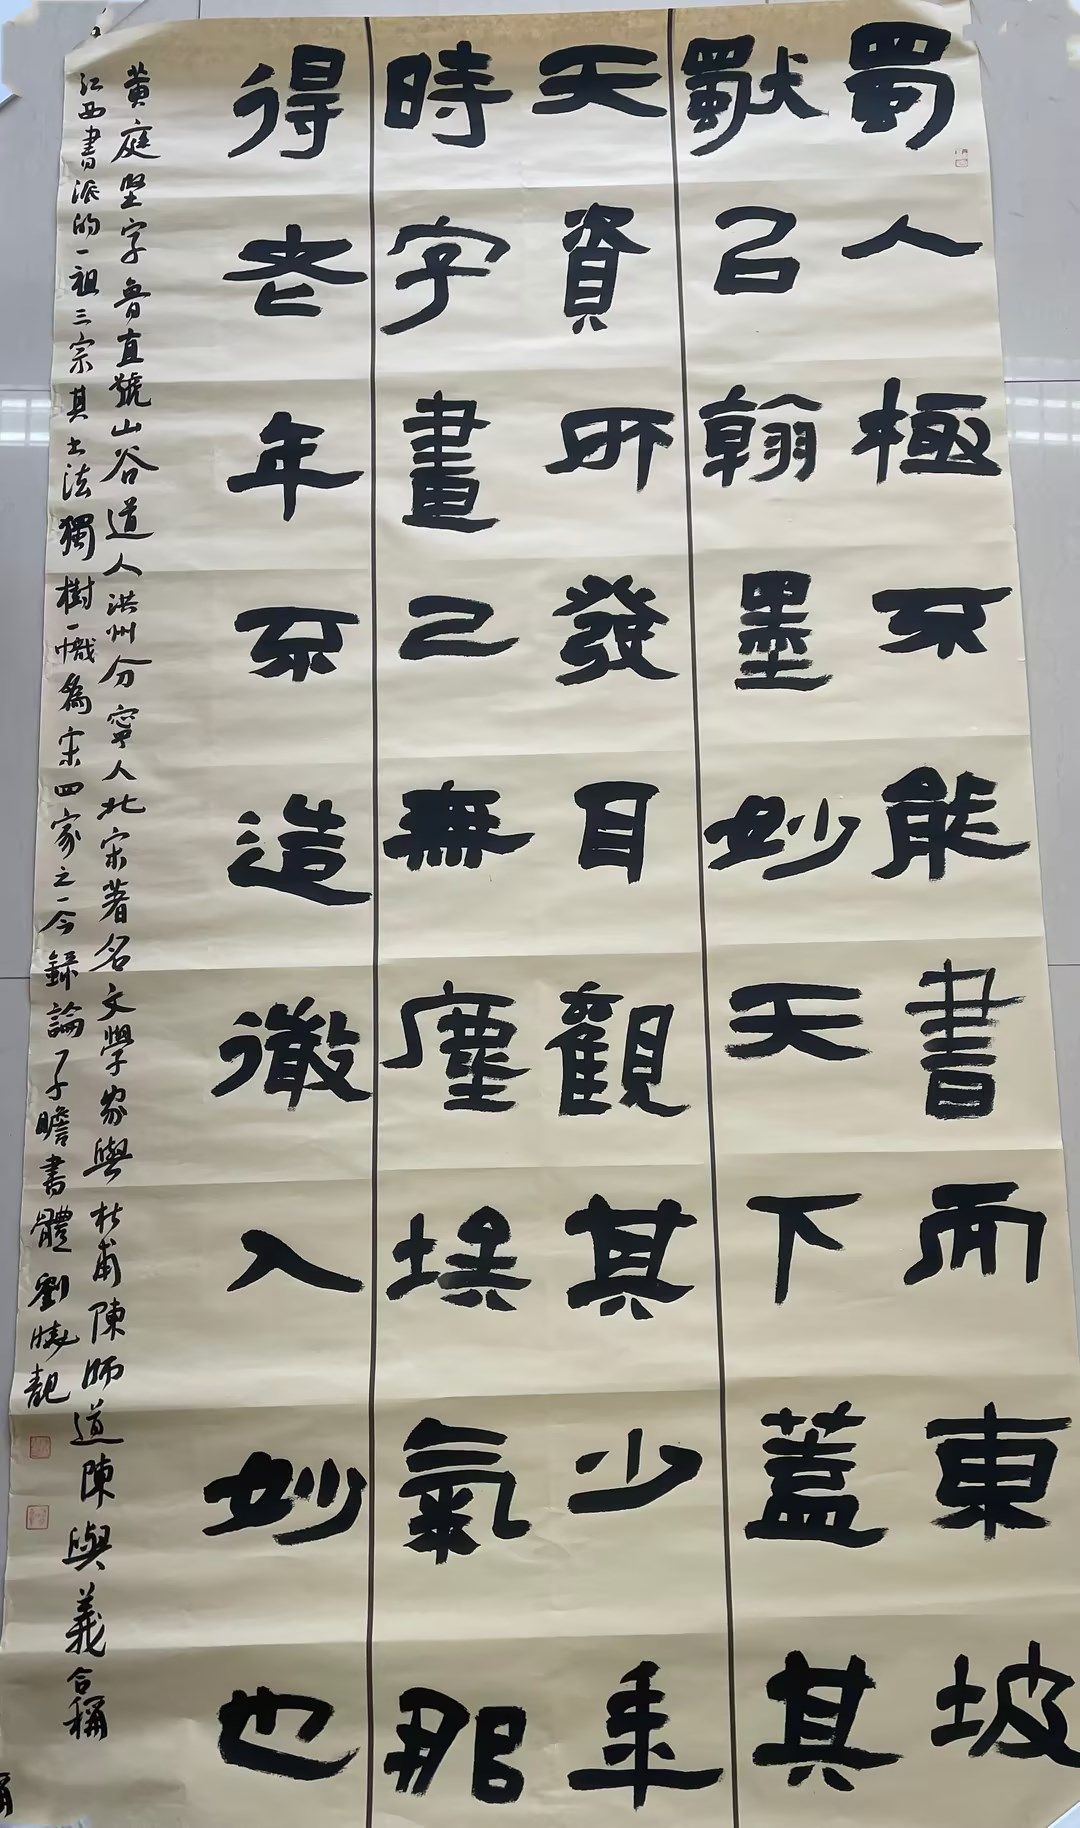 蜀人極不能書而東坡
獨㠯翰墨妙天下蓋其
天資所發耳觀其少年
時字畫已無塵埃氣那
得老年不造微入妙也
黃庭堅字魯直號山谷道人洪州分寧人北宋著名文學家與杜甫陳師道陳與義合稱
江西書派的一祖三宗其書法獨樹一幟為宋四家之一今錄論子瞻書體劉曉靚